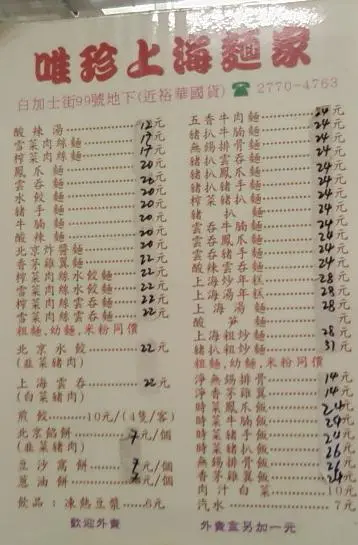 唯珍上海麵家
白加士街99號地下(近裕華國貨) ☎ 2770-4763
酸辣湯……12元
雪菜肉絲麵……17元
榨菜肉絲麵……17元
鳳爪麵……20元
雲吞麵……20元
水餃麵……20元
豬手麵……20元
牛腩麵……20元
酸辣麵……20元
北京炸醬麵……20元
香茅雞翼麵……22元
榨菜肉絲水餃麵……22元
雪菜肉絲水餃麵……22元
榨菜肉絲雲吞麵……22元
雪菜肉絲雲吞麵……22元
粗麵,幼麵,米粉同價
北京水餃……22元
(韮菜豬肉)
上海雲吞……22元
(白菜豬肉)
煎餃……10元/(4隻/客)
北京餡餅……7元/個
(韮菜豬肉)
豆沙窩餅……元/個
蔥油餅……元/個
飲品:凍熱豆漿……6元
歡迎外賣
五香牛肉麵……24元
豬扒牛腩麵……24元
無錫排骨麵……24元
豬扒雲吞麵……24元
豬扒鳳爪麵……24元
豬扒豬手麵……24元
榨菜豬扒麵……24元
豬扒麵……24元
雲吞牛腩麵……24元
雲吞鳳爪麵……24元
雲吞豬手麵……24元
酸辣雲吞麵……24元
上海炒年糕……28元
上海湯年糕……28元
上海湯麵……28元
酸筍麵……元
上海粗炒麵……28元
豬扒粗炒麵……31元
粗麵,幼麵,米粉同價
淨無錫排骨……14元
淨香茅雞翼……14元
時菜鳳爪飯……24元
時菜牛腩飯……24元
時菜豬手飯……24元
時菜豬扒飯……26元
無錫排骨飯……26元
香茅雞翼飯……24元
肉汁白菜……10元
汽水……7元
外賣盒另加一元